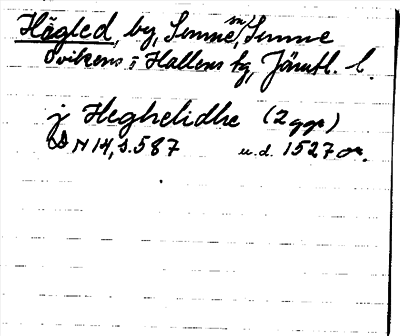 Hägled, by, Sunne, Sunne
Ovikens o Hallens sg, Jämtl. l.
j Heghelidhe (2 ggr)
N 14, s. 587 u.d. 1527 or.